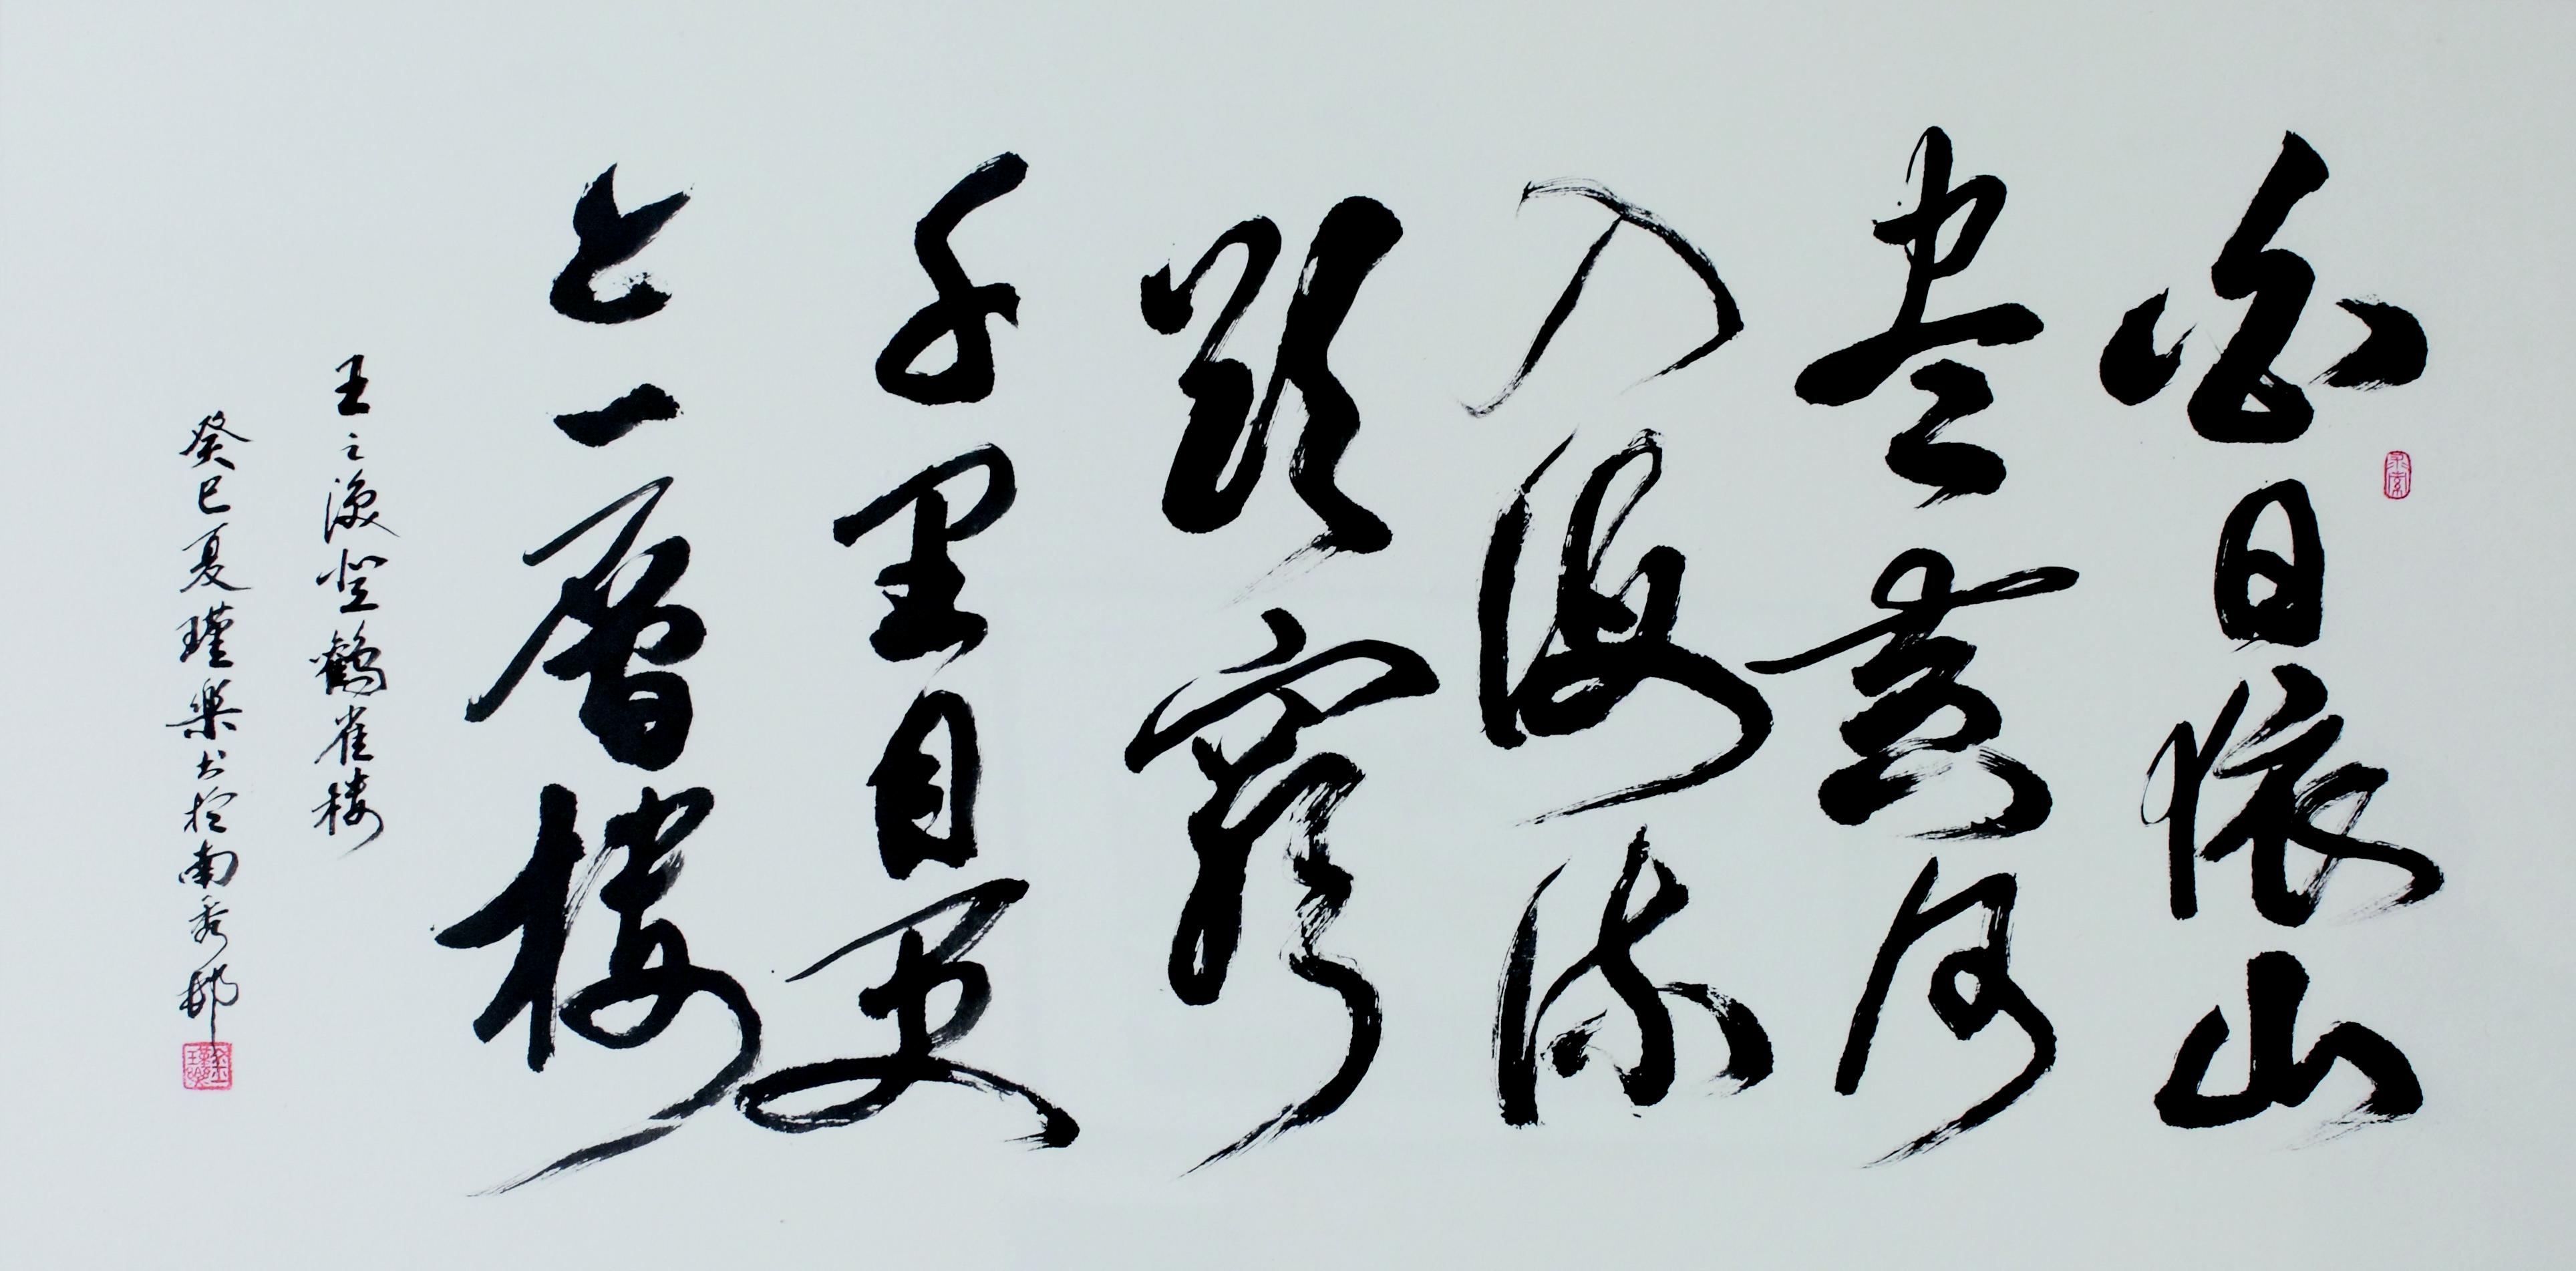 白日依山
尽黄河
入海流
欲穷
千里目更
上一層楼
王之渙登鹳雀楼
癸巳夏瑾樂书於南秀村